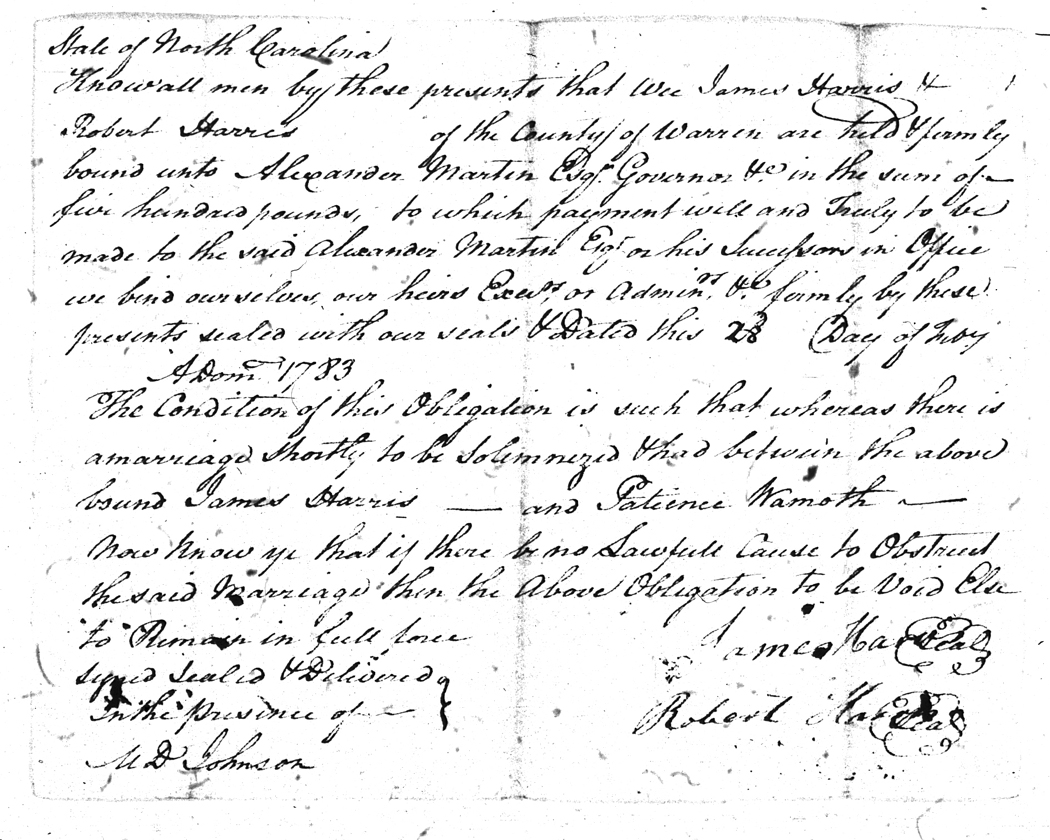 State of North Carolina
Know all men by these presents that Wee James Harris &
Robert Harris of the County of Warren are held & firmly
bound unto Alexander Martin Esqr. Governor &c in the sum of
five hundred pounds, to which payment well and Truly to be
made to the said Alexander Martin Esqr or his Successors in Office
we bind ourselves, our heirs Execrs, or Adminrs, &c firmly by these
presents sealed with our seals & Dated this 28 Day of
A Dom 1783
The Condition of this Obligation is such that whereas there is
a marriage shortly to be Solemnezed & had between the above
bound James Harris — and Patience Wamoth —
Now Know ye that if there be no Lawfull Cause to Obstruct
the said Marriage then the Above Obligation to be Void Else
to Remain in full force
signed Sealed & Delivered
In the presence of —
James Harris Seal
Robert Harris Seal
M D Johnson